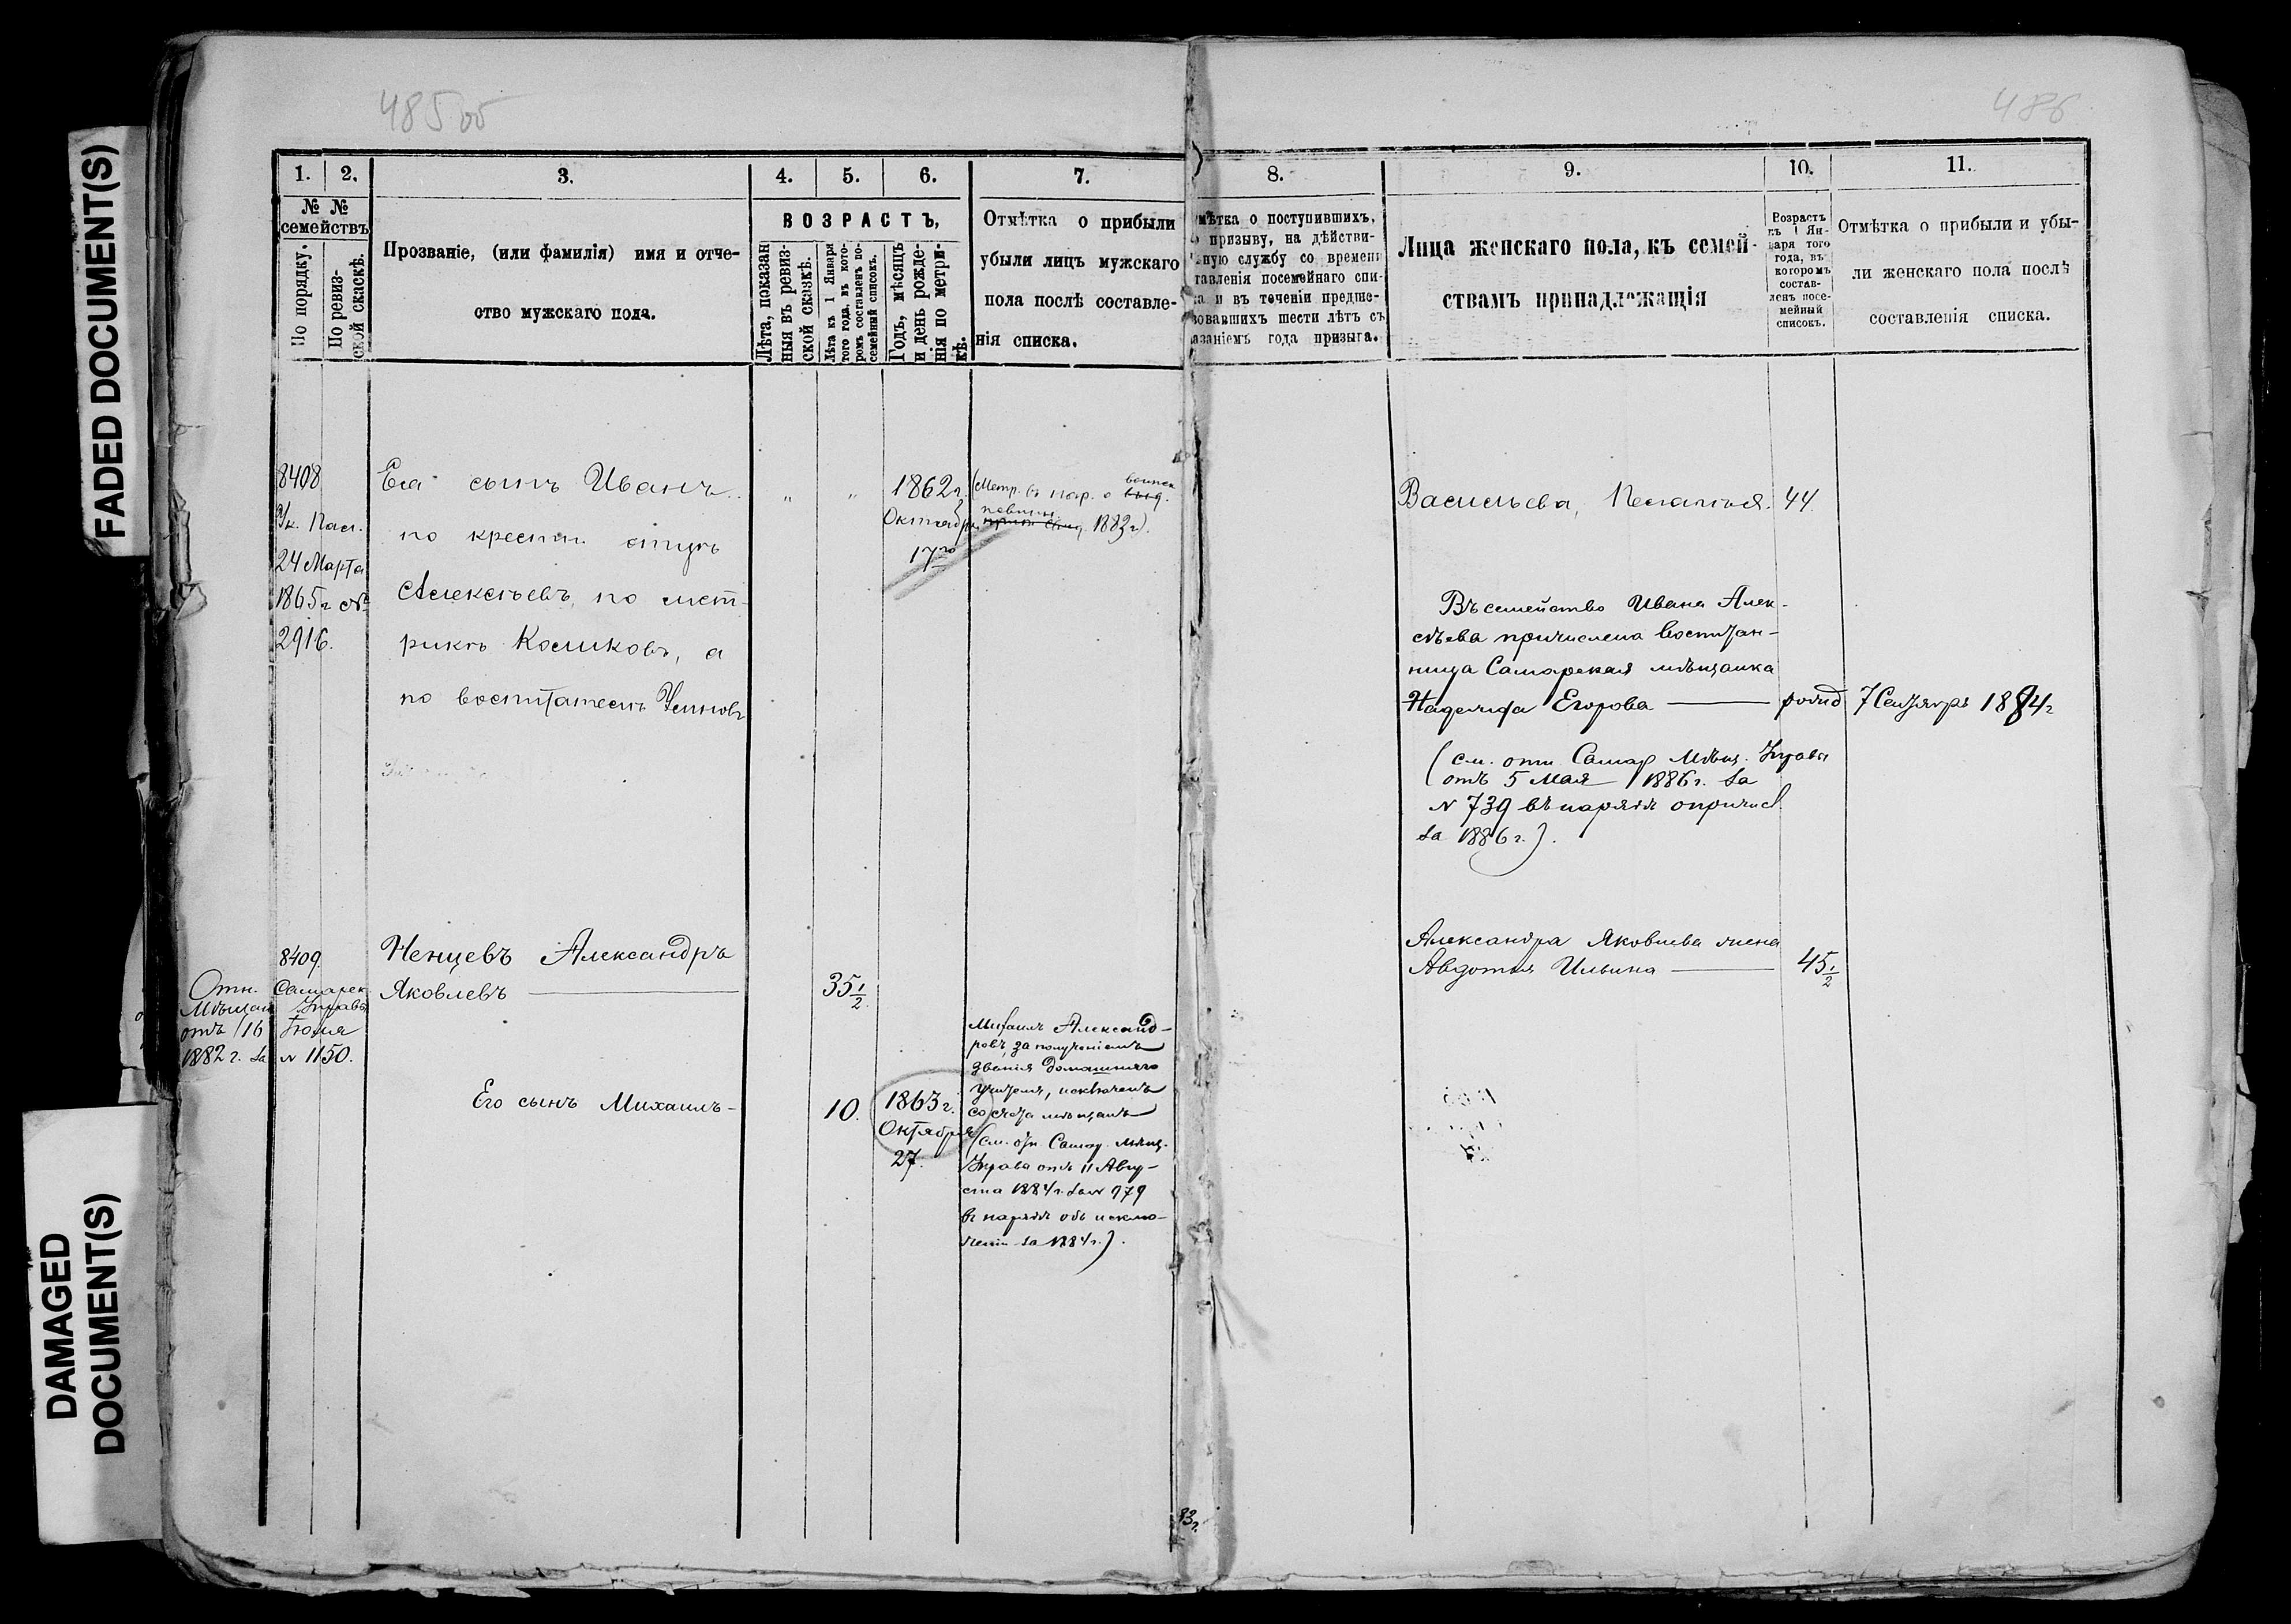 FADED DOCUMENT(S)
DAMAGED
DOCUMENT(S)
485об
486
1. 2. 3. 4. 5. 6. 7. 8. 9. 10. 11.
№ №
семействъ
По порядку.
По ревиз-
ской скаскѣ.
Прозваніе, (или фамилія) имя и отче-
ство мужскаго пола.
ВОЗРАСТЪ,
Лѣта, показан
ныя въ ревиз-
ской сказкѣ.
Лѣта къ 1 Января
того года, въ кото-
ромъ составленъ по-
семейный списокъ.
Годъ, мѣсяцъ
и день рожде-
нія по метри-
кѣ.
Отмѣтка о прибыли
убыли лицъ мужскаго
пола послѣ составле-
нія списка.
мѣтка о поступившихъ,
призыву, на дѣйстви-
ную службу со времени
тавленія посемейнаго спи-
ка и въ теченіи предше-
вовавшихъ шести лѣтъ съ
азаніемъ года призыва.
Лица женскаго пола, къ семей-
ствамъ принадлежащія
Возрастъ
къ 1 Ян-
варя того
года, въ
которомъ
состав-
ленъ посе-
мейный
списокъ.
Отмѣтка о прибыли и убы-
ли женскаго пола послѣ
составленія списка.
8408
24 Марта
1865 г №
2916.
Ея сынъ Иванъ
по крестн. отцу
Алексѣевъ, по мет-
рикѣ Косиковъ, а
по воспитателю
" "
1862 г.
Октября
17го
(Метр. въ нар. о воинск
повин. 1883 г).
Васильева, Пелагѣя. 44
Въ семейство Ивана Алек-
сѣева причислена воспитан-
ница Самарская мѣщанка
Надежда Егорова — рожд 7 Сентября 1884 г
(см. отн. Самар Мѣщ. Управы
отъ 5 Мая 1886 г. за
№ 739 въ нарядѣ о причисл
за 1886 г.).
8409.
Отн. Самарск.
Мѣщан Управы
отъ 16 Іюля
1882 г. за № 1150.
Ненцевъ Александръ
Яковлевъ —
35 1/2
Александра Яковлева жена
Авдотья Ильина — 45 1/2
Его сынъ Михаилъ -
10.
1863 г.
Октября
27.
Михаилъ Александ-
ровъ, за полученіемъ
званія домашняго
учителя, исключенъ
со счета мѣщанъ
(см. отн. Самар. Мѣщ.
Управы отъ 11 Авгу-
ста 1884 г. за № 979
въ нарядѣ объ исклю-
ченіи за 1884 г.).
83 г.